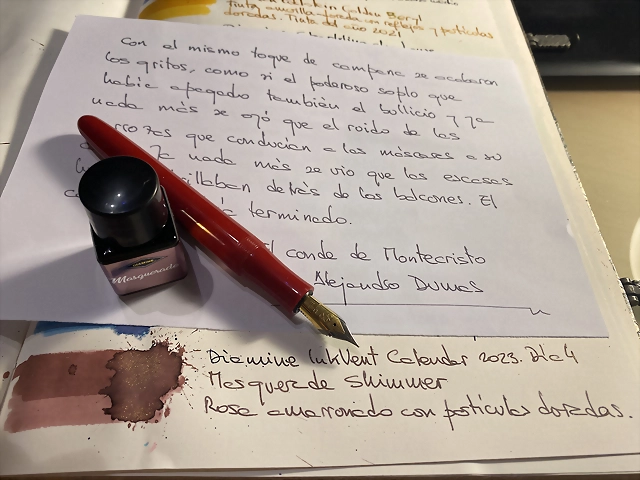 Tinta amarilla dorada con partículas
doradas. Tinta del año 2021
Con el mismo toque de campana se acabaron
los gritos, como si el poderoso soplo que
había apagado también el bullicio y ya
nada más se oyó que el ruido de las
rrozas que conducían a las máscaras a su
Ya nada más se vio que las escasas
brillaban detrás de los balcones. El
terminado.
El conde de Montecristo
Alejandro Dumas
DIAMINE
Masquerade
Diamine InkVent Calendar 2023. Día 4
Masquerade Shimmer
Rosa amarronado con partículas doradas.